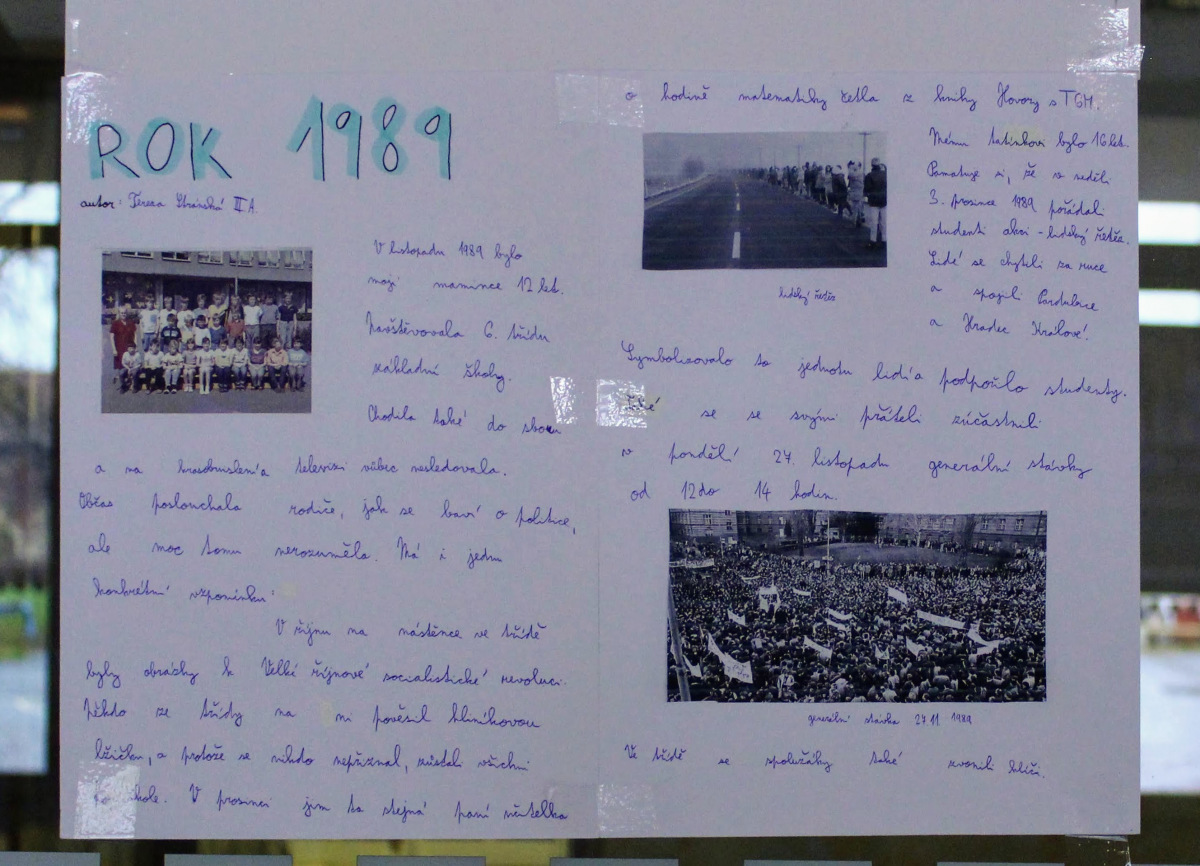 ROK 1989
autor: Tereza Stránská II.A.
V listopadu 1989 bylo
mojí mamince 12 let.
Navštěvovala 6. třídu
základní školy.
Chodila také do sboru
a na krasobruslení a televizi vůbec nesledovala.
Občas poslouchala rodiče, jak se baví o politice,
ale moc tomu nerozuměla. Má i jednu
konkrétní vzpomínku:
V říjnu na nástěnce ve třídě
byly obrázky k Velké říjnové socialistické revoluci.
Někdo ze třídy na ni pověsil hliníkovou
lžičku, a protože se nikdo nepřiznal, zůstali všichni
po škole. V prosinci jim ta stejná paní učitelka
o hodině matematiky četla z knihy Hovory s TGM.
Mému tatínkovi bylo 16 let.
Pamatuje si, že v neděli
3. prosince 1989 pořádali
studenti akci - lidský řetěz.
Lidé se chytili za ruce
a spojili Pardubice
a Hradec Králové!
lidský řetěz
Symbolizovalo to jednotu lidí a podpořilo studenty.
Také se se svými přáteli zúčastnili
v pondělí 27. listopadu generální stávky
od 12 do 14 hodin.
generální stávka 27.11 1989
Ve třídě se spolužáky také zvonili klíči.